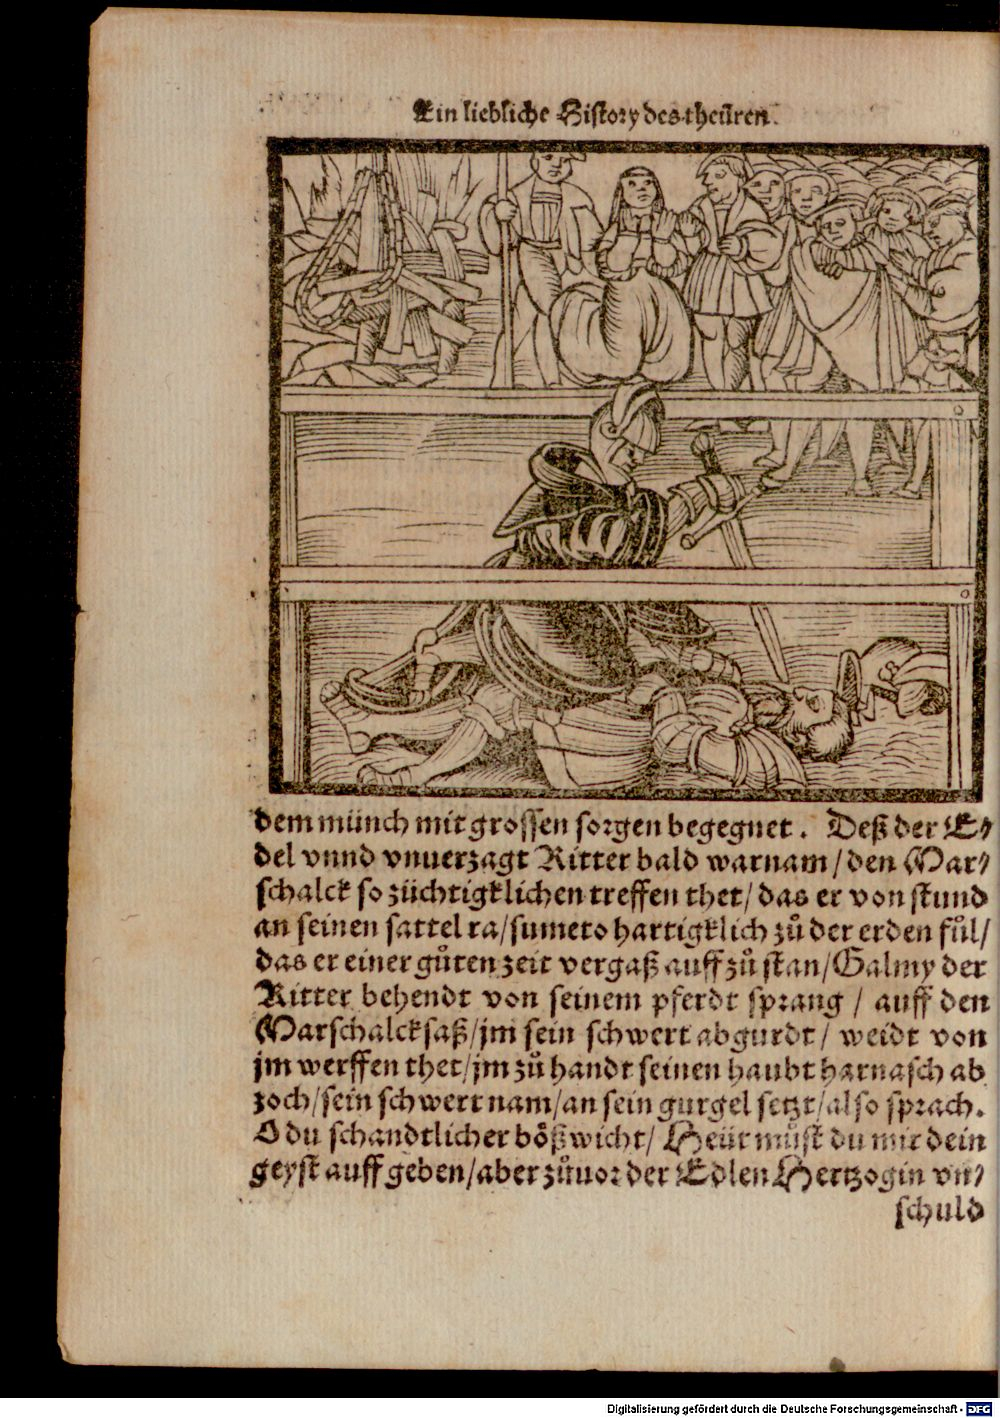 Ein liebliche History des theüren.
dem münch mit grossen sorgen begegnet. Deß der E⸗
del vnnd vnuerzagt Ritter bald warnam/ den Mar⸗
schalck so züchtigklichen treffen thet/ das er von stund
an seinen sattel ra/ sumeto hartigklich zů der erden fůl/
das er einer gůten zeit vergaß auff zů stan/ Galmy der
Ritter behendt von seinem pferdt sprang / auff den
Marschalck saß/ jm sein schwert abgurdt/ weidt von
jm werffen thet/ jm zů handt seinen haubt harnasch ab
zoch/ sein schwert nam/ an sein gurgel setzt/ also sprach.
O du schandtlicher bößwicht/ Heüt můst du mir dein
geyst auff geben/ aber zůuor der Edlen Hertzogin vn⸗
schuld
Digitalisierung gefördert durch die Deutsche Forschungsgemeinschaft - DFG